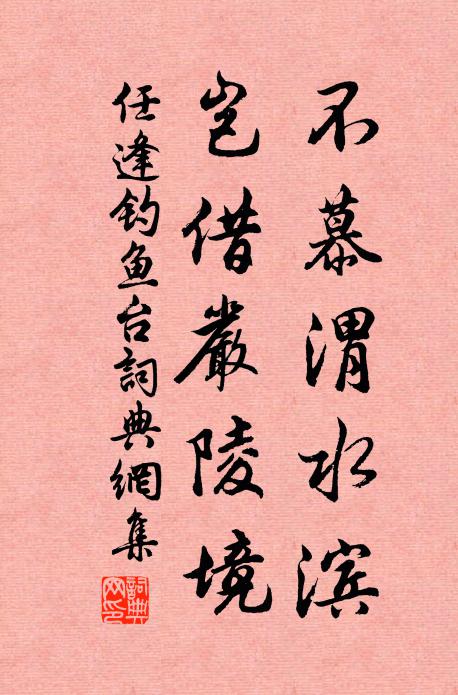 不慕渭水滨
岂借嚴陵境
任逢钓鱼台詞典網集
詞典网印